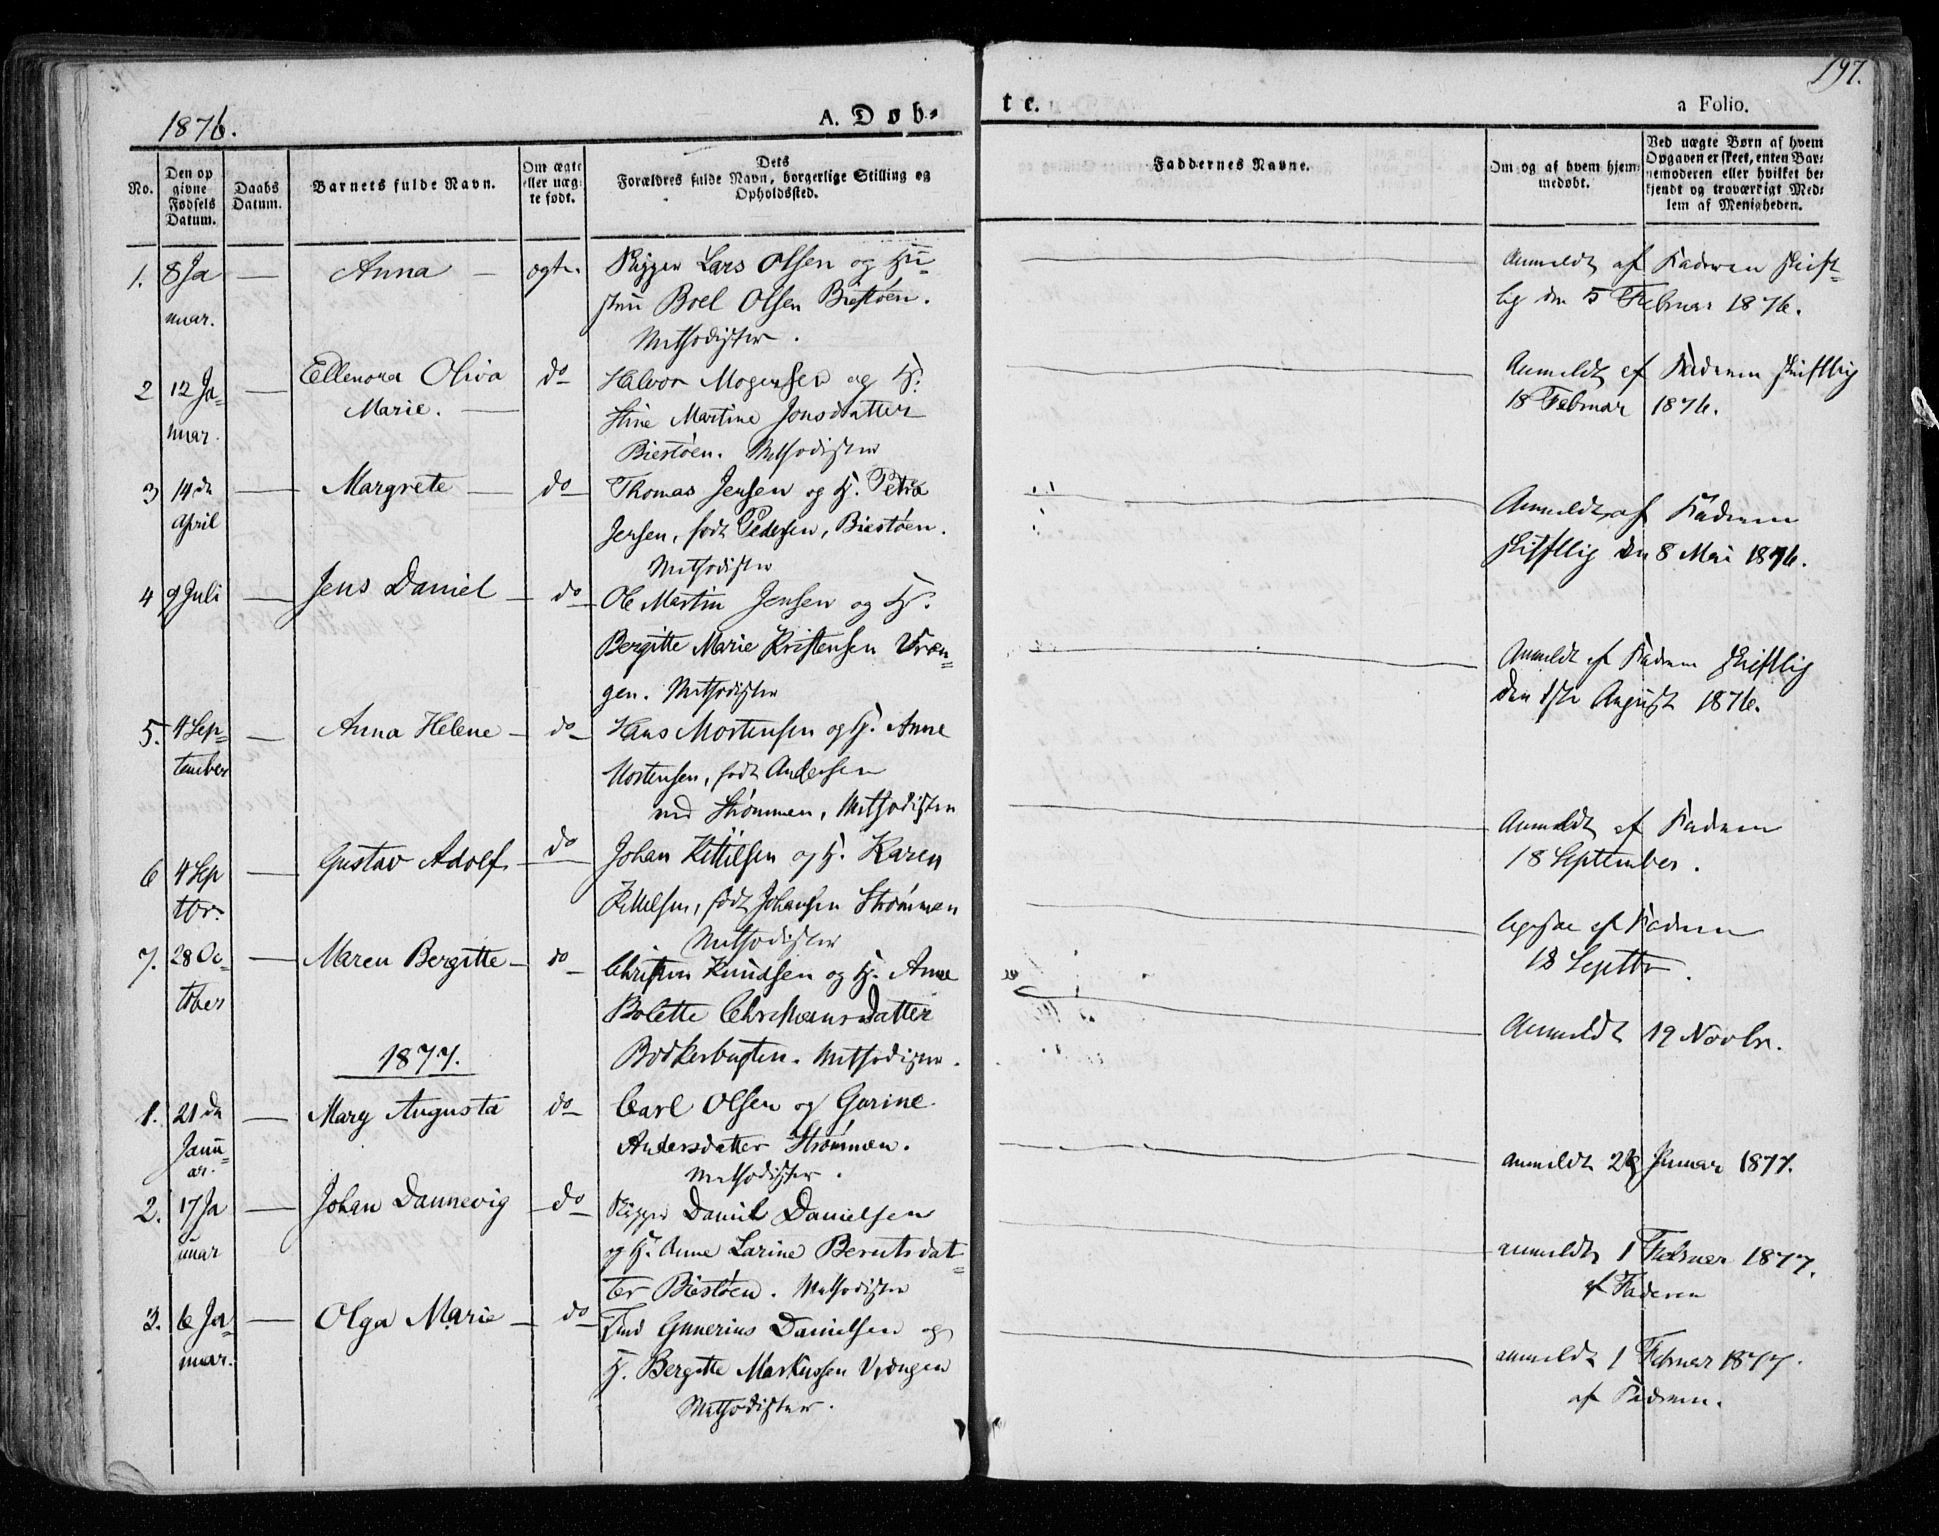 197.
1876.
A. Døb-
te.
a Folio.
No.
Den op
givne
Fødsels
Datum.
Daabs
Datum.
Barnets fulde Navn.
Om ægte
eller uæg-
te født.
Dets
Forældres fulde Navn, borgerlige Stilling og
Opholdssted.
Faddernes Navne.
Om og af hvem hjem-
medøbt.
Ved uægte Børn af hvem
Opgaven er skeet, enten Bar-
nemoderen eller hvilket be-
kjendt og troværdigt Med-
lem af Menigheden.
1. 8 Ja — Anna — ægte. Skipper Lars Olsen og Hu-
nuar. stru Boel Olsen Biestøen.
Methodister.
Anmeldt af Faderen skrift-
lig den 5 Februar 1876.
2 12 Ja- — Ellenora Oliva do Halvor Mogensen og H.
nuar. Marie. — Stine Martine Jonsdatter
Biestøen. Methodister
Anmeldt af Faderen skriftlig
18 Februar 1876.
3 14de — Margrete — do Thomas Jensen og H. Petra
April Jensen, født Pedersen, Biestøen.
Methodister
Anmeldt af Faderen
skriftlig den 8 Mai 1876.
4 9 Juli — Jens Daniel — do Ole Martin Jensen og H.
Bergitte Marie Kristensen Vræn-
gen. Methodister
Anmeldt af Faderen skriftlig
den 1ste August 1876.
5. 4 Sep- — Anna Helene — do Hans Mortensen og H. Anne
tember Mortensen, født Andersen
ved Strømmen, Methodister
Anmeldt af Faderen
18 September.
6 4 Sep — Gustav Adolf do Johan Kittilsen og H. Karen
tbr. Kittelsen, født Johansen Strømmen
Methodister
ligesaa af Faderen
18 Septbr.
7. 28 Oc- — Maren Bergitte — do Christen Knudsen og H. Anne
tober Bolette Christiansdatter
Bødkerbugten. Methodister.
Anmeldt 19 Novbr.
1877.
1. 21de — Mary Augusta do Carl Olsen og Gorine
Janu- Andersdatter Strømmen.
ar. Methodister.
anmeldt 26 Januar 1877.
2. 17 Ja — Johan Dannevig — do Skipper Daniel Danielsen
nuar og H. Anne Larine Berntsdat-
ter Biestøen. Methodister
anmeldt 1 Februar 1877.
af Faderen
3. 6 Ja- — Olga Marie — do Gunerius Danielsen og
nuar. H. Bergitte Markussen Vrængen
Methodister.
anmeldt 1 Februar 1877.
af Faderen.